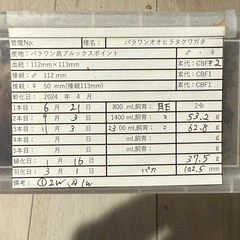 管理No: 種名: パラワンオオヒラタクワガタ
産地:パラワン島ブルックスポイント
血統:112mm×113mm 累代:CBF#2
種親:♂ 112 mm 累代:CBF1
種親:♀ 50 mm(種親113mm) 累代:CBF1
孵化日 2024 年 4 月
1本目: 6 月 21 日 800 mL飼育: 2令
2本目: 9 月 3 日 1400 mL飼育: 53.2 g
3本目: 1 月 3 日 2300 mL飼育: 62.8 g
4本目: 月 日 mL飼育: g
蛹化日: 1 月 16 日 37.5 g
羽化日: 3 月 1 日 バカ 102.5 mm
備考: